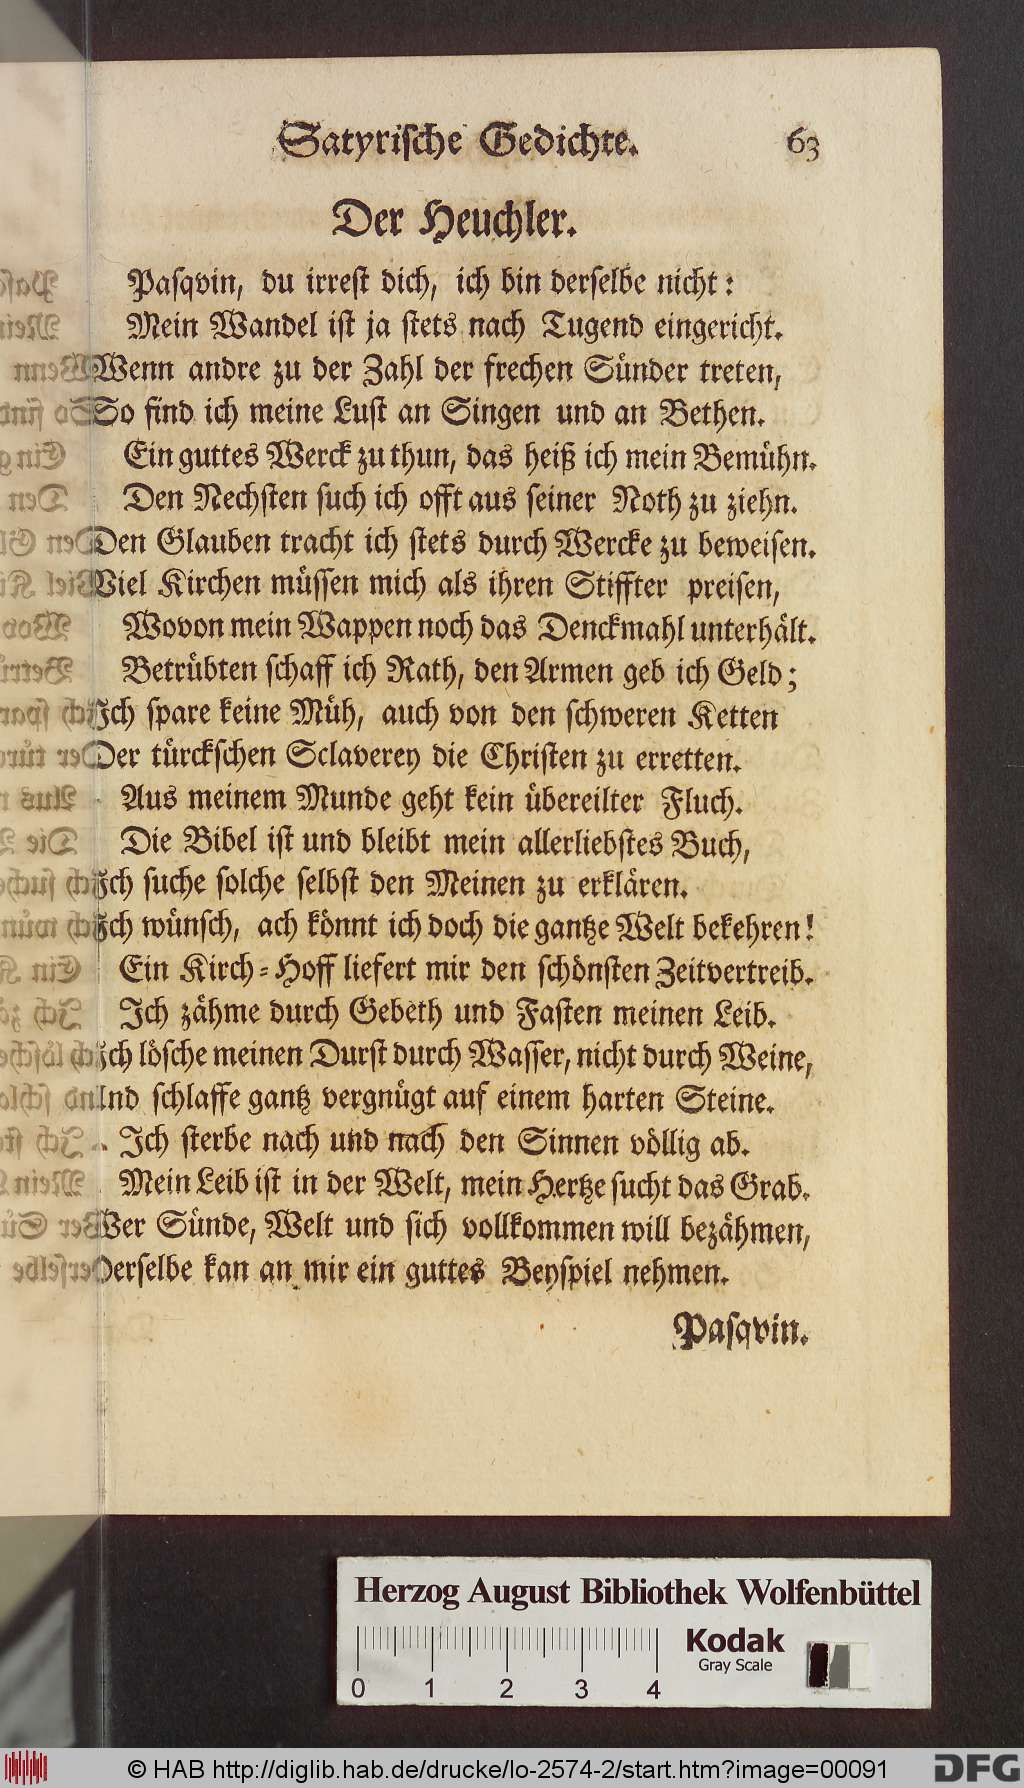 Satyrische Gedichte. 63
Der Heuchler.
Pasqvin, du irrest dich, ich bin derselbe nicht:
Mein Wandel ist ja stets nach Tugend eingericht.
Wenn andre zu der Zahl der frechen Sünder treten,
So find ich meine Lust an Singen und an Bethen.
Ein guttes Werck zu thun, das heiß ich mein Bemühn.
Den Nechsten such ich offt aus seiner Noth zu ziehn.
Den Glauben tracht ich stets durch Wercke zu beweisen.
Viel Kirchen müssen mich als ihren Stiffter preisen,
Wovon mein Wappen noch das Denckmahl unterhält.
Betrübten schaff ich Rath, den Armen geb ich Geld;
Ich spare keine Müh, auch von den schweren Ketten
Der türckschen Sclaverey die Christen zu erretten.
Aus meinem Munde geht kein übereilter Fluch.
Die Bibel ist und bleibt mein allerliebstes Buch,
Ich suche solche selbst den Meinen zu erklären.
Ich wünsch, ach könnt ich doch die gantze Welt bekehren!
Ein Kirch-Hoff liefert mir den schönsten Zeitvertreib.
Ich zähme durch Gebeth und Fasten meinen Leib.
Ich lösche meinen Durst durch Wasser, nicht durch Weine,
Und schlaffe gantz vergnügt auf einem harten Steine.
Ich sterbe nach und nach den Sinnen völlig ab.
Mein Leib ist in der Welt, mein Hertze sucht das Grab.
Wer Sünde, Welt und sich vollkommen will bezähmen,
Derselbe kan an mir ein guttes Beyspiel nehmen.
Pasqvin.
Herzog August Bibliothek Wolfenbüttel
Kodak
Gray Scale
0 1 2 3 4
© HAB http://diglib.hab.de/drucke/lo-2574-2/start.htm?image=00091 DFG